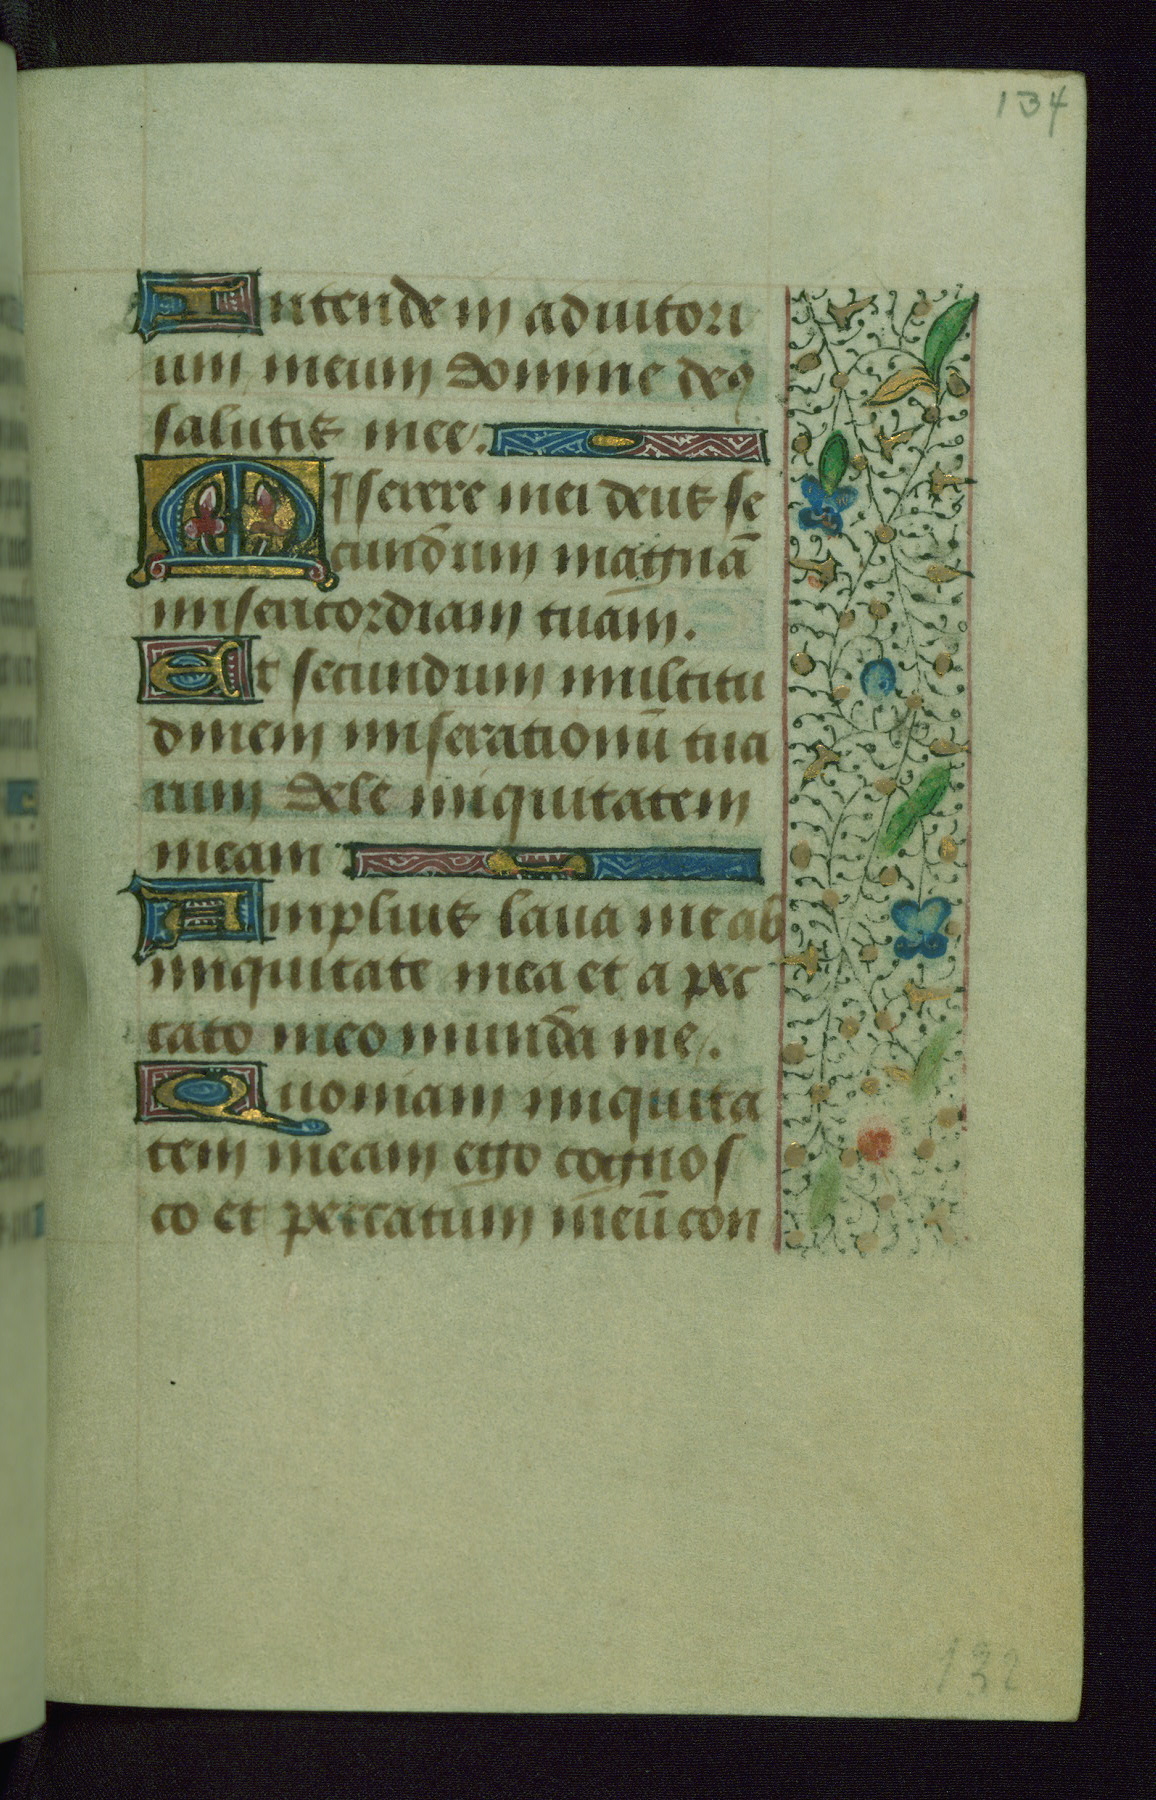 134
Intende in adiutori
um meum domine deꝰ
salutis mee.
Misserere mei deus se
cundum magnā
misericordiam tuam.
Et secundum multitu
dinem miserationū tua
rum dele iniquitatem
meam
Amplius laua me ab
iniquitate mea et a pec
cato meo munda me.
Quoniam iniquita
tem meam ego cognos
co et peccatum meū con
132